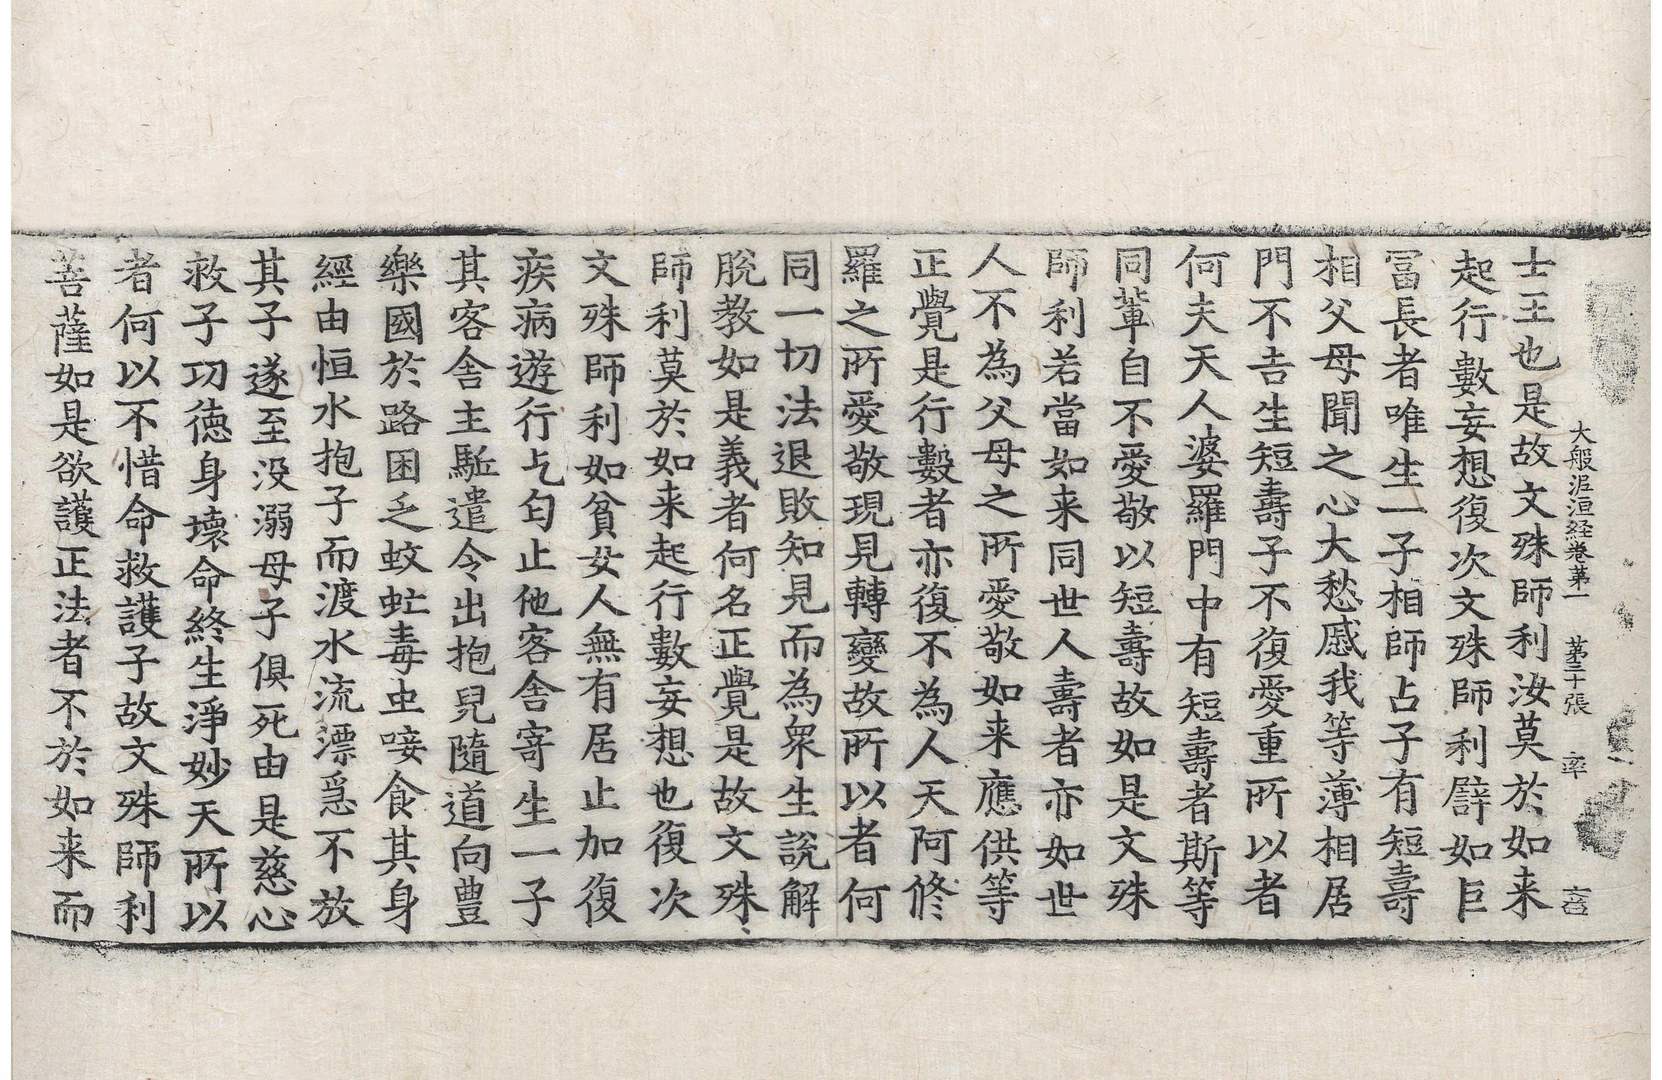 大般泥洹経卷第一 第二十張 率 言
士王也是故文殊師利汝莫於如来
起行數妄想復次文殊師利譬如巨
冨長者唯生一子相師占子有短壽
相父母聞之心大愁慼我等薄相居
門不吉生短壽子不復愛重所以者
何夫天人婆羅門中有短壽者斯等
同輩自不愛敬以短壽故如是文殊
師利若當如来同世人壽者亦如世
人不為父母之所愛敬如来應供等
正覺是行數者亦復不為人天阿修
羅之所愛敬現見轉變故所以者何
同一切法退敗知見而為衆生說解
脫教如是義者何名正覺是故文殊
師利莫於如来起行數妄想也復次
文殊師利如貧女人無有居止加復
疾病遊行乞匄止他客舍寄生一子
其客舍主駈遣令出抱兒隨道向豊
樂國於路困乏蚊虻毒虫唼食其身
經由恒水抱子而渡水流漂急不放
其子遂至没溺母子俱死由是慈心
救子功德身壞命終生淨妙天所以
者何以不惜命救護子故文殊師利
菩薩如是欲護正法者不於如来而